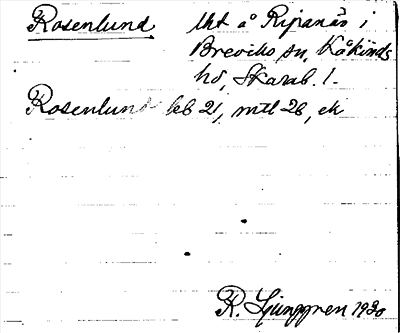 Rosenlund Uht å Ripanäs i
Breviks sn, Kåkinds
hd, Skarab. l.
Rosenlund kb 21, mtl 26, ek
R. Ljunggren 1930